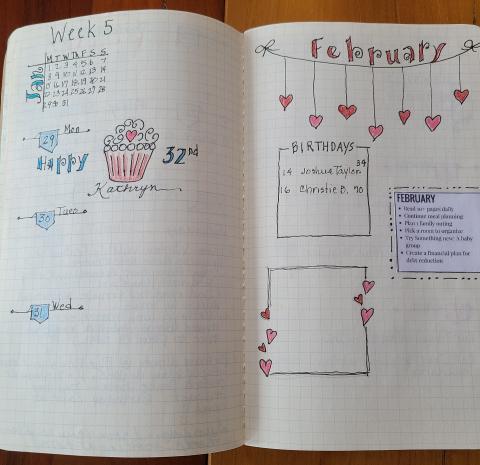 Week 5
Jan
M T W T F S S
1 2 3 4 5 6 7
8 9 10 11 12 13 14
15 16 17 18 19 20 21
22 23 24 25 26 27 28
29 30 31
29 Mon
Happy 32nd
Kathryn
30 Tues
31 Wed
February
BIRTHDAYS
14 Joshua Taylor 34
16 Christie B. 70
FEBRUARY
• Read 10+ pages daily
• Continue meal planning
• Plan 1 family outing
• Pick a room to organize
• Try Something new: A baby
group
• Create a financial plan for
debt reduction